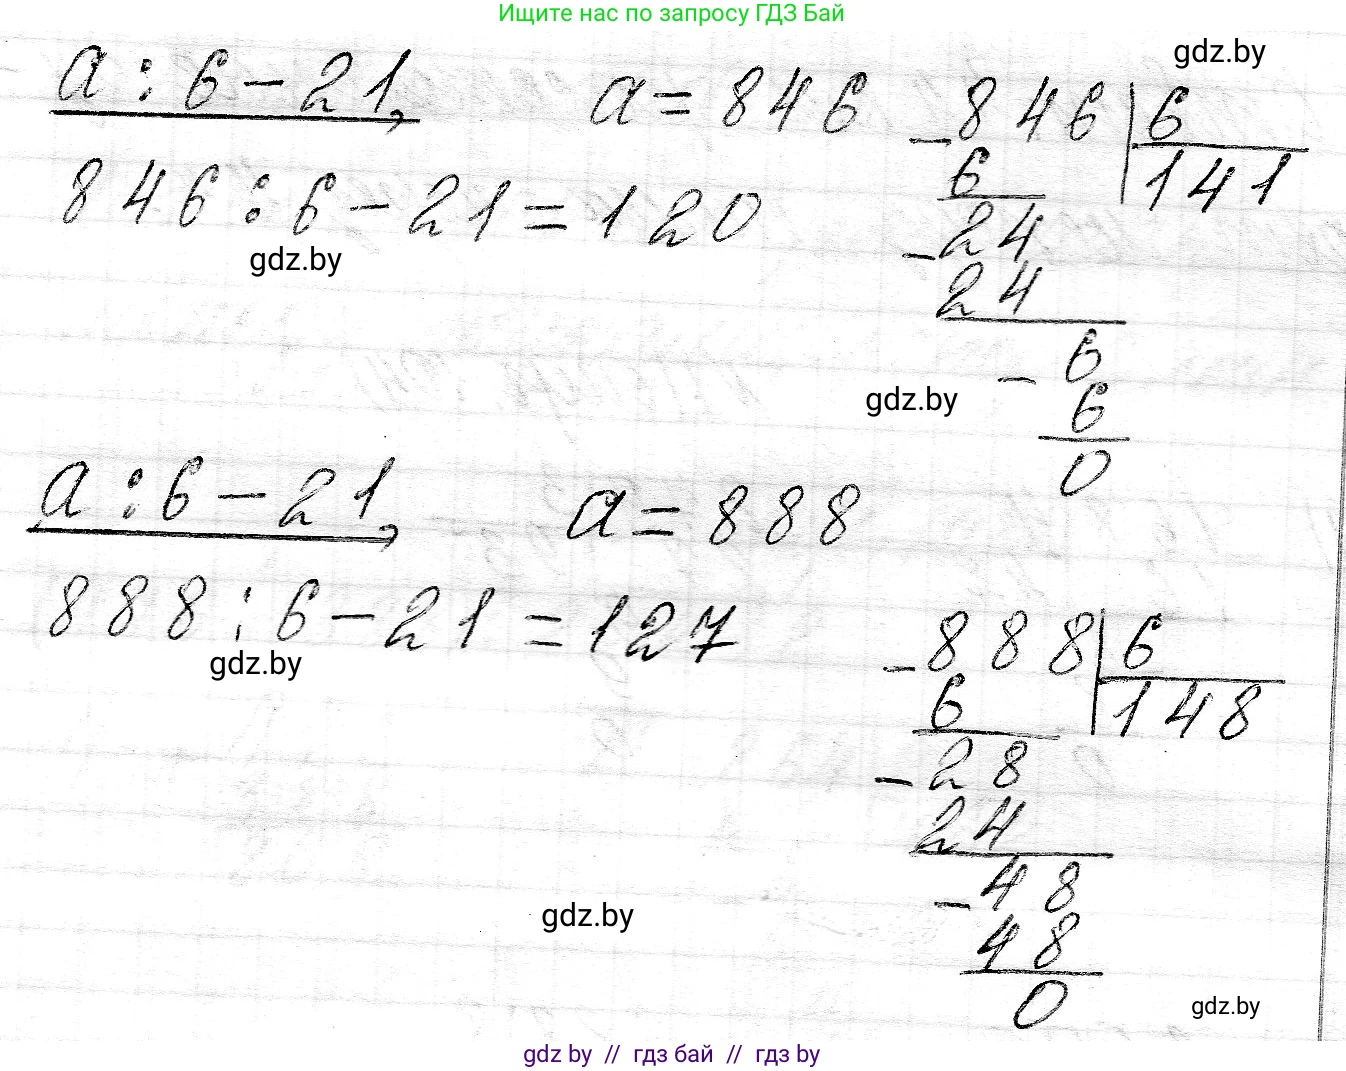 Ищите нас по запросу ГДЗ Бай
gdz.by
a : 6 - 21, a = 846
846 : 6 - 21 = 120
gdz.by
- 846 | 6
6 141
- 24
24
- 6
6
0
gdz.by
a : 6 - 21, a = 888
888 : 6 - 21 = 127
gdz.by
- 888 | 6
6 148
- 28
24
- 48
48
0
gdz.by
gdz.by
gdz by // гдз бай // гдз by